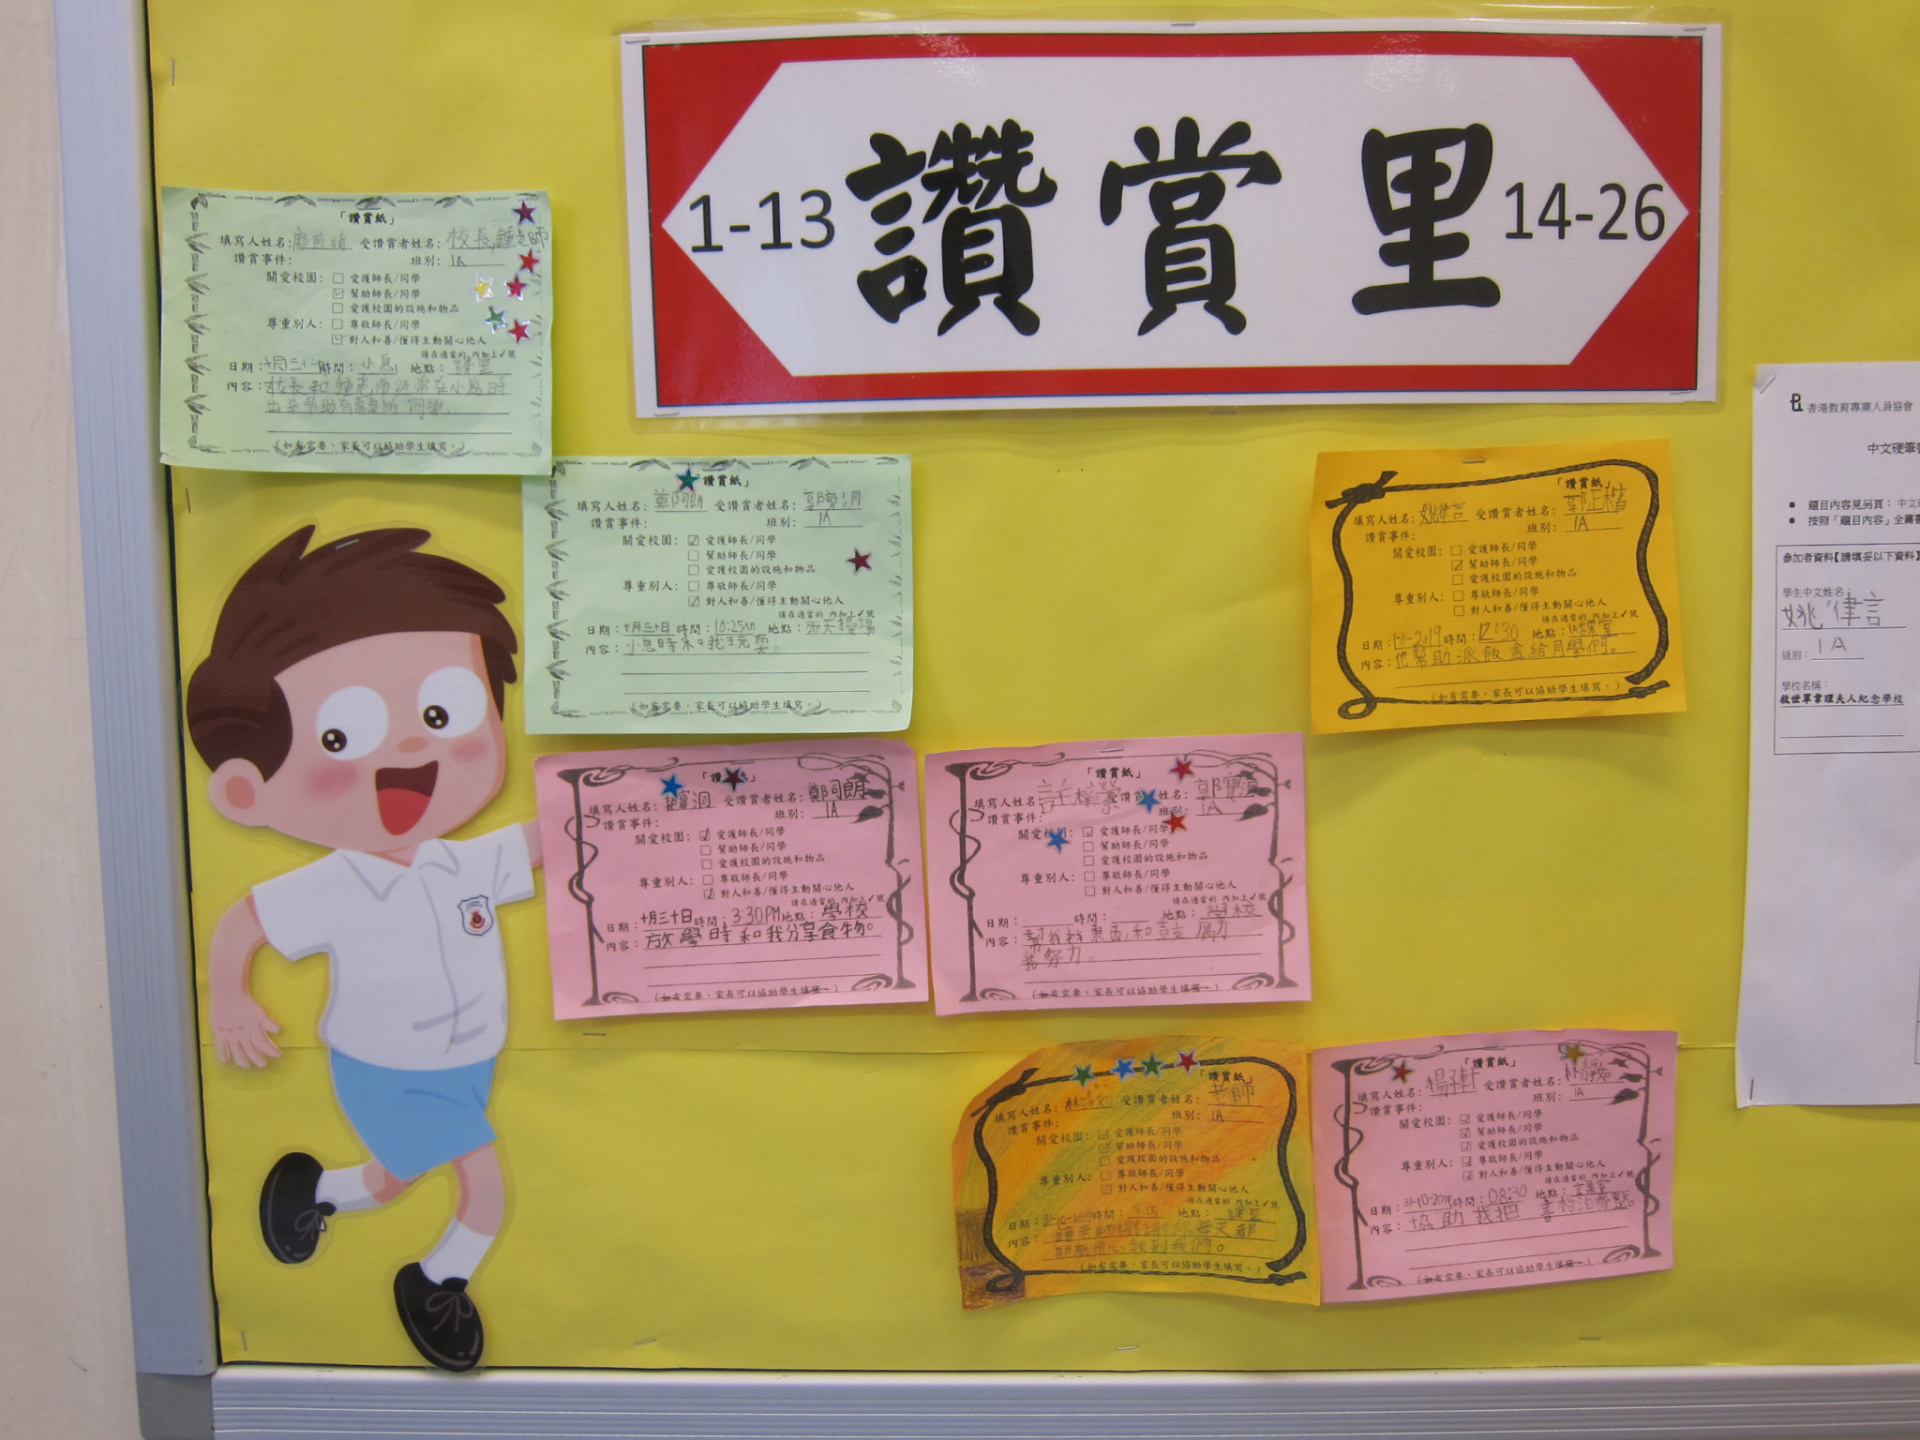 1-13 讚賞里 14-26
「讚賞紙」
填寫人姓名: 受讚賞者姓名: 校長,鍾老師
讚賞事件: 班別: 1A
關愛校園: □ 愛護師長/同學
☑ 幫助師長/同學
□ 愛護校園的設施和物品
尊重別人: □ 尊敬師長/同學
☑ 對人和善/懂得主動關心他人
請在適當的□內加上✓號
日期: 時間: 小息 地點:
內容: 校長和鍾老師經常在小息時
出來幫助有需要的同學.
(如有需要,家長可以協助學生填寫。)
「讚賞紙」
填寫人姓名: 鄭同朗 受讚賞者姓名:
讚賞事件: 班別: 1A
關愛校園: ☑ 愛護師長/同學
□ 幫助師長/同學
□ 愛護校園的設施和物品
尊重別人: □ 尊敬師長/同學
☑ 對人和善/懂得主動關心他人
請在適當的□內加上✓號
日期: 十月三十日 時間: 10:25am 地點: 雨天操場
內容: 小息時和我玩耍。
(如有需要,家長可以協助學生填寫。)
「讚賞紙」
填寫人姓名: 姚律言 受讚賞者姓名: 鄭正楷
讚賞事件: 班別: 1A
關愛校園: □ 愛護師長/同學
☑ 幫助師長/同學
□ 愛護校園的設施和物品
尊重別人: □ 尊敬師長/同學
□ 對人和善/懂得主動關心他人
請在適當的□內加上✓號
日期: 1-11-2019 時間: 12:30 地點: 課室
內容: 他幫助派飯盒給同學們。
(如有需要,家長可以協助學生填寫。)
「讚賞紙」
填寫人姓名: 受讚賞者姓名: 鄭同朗
讚賞事件: 班別: 1A
關愛校園: ☑ 愛護師長/同學
□ 幫助師長/同學
□ 愛護校園的設施和物品
尊重別人: □ 尊敬師長/同學
☑ 對人和善/懂得主動關心他人
請在適當的□內加上✓號
日期: 十月三十日 時間: 3:30PM 地點: 學校
內容: 放學時和我分享食物。
(如有需要,家長可以協助學生填寫。)
「讚賞紙」
填寫人姓名: 受讚賞者姓名:
讚賞事件: 班別: 1A
關愛校園: ☑ 愛護師長/同學
□ 幫助師長/同學
□ 愛護校園的設施和物品
尊重別人: □ 尊敬師長/同學
□ 對人和善/懂得主動關心他人
請在適當的□內加上✓號
日期: 時間: 地點: 學校
內容: 幫我找東西,和鼓勵
我努力。
(如有需要,家長可以協助學生填寫。)
「讚賞紙」
填寫人姓名: 受讚賞者姓名: 老師
讚賞事件: 班別: 1A
關愛校園: ☑ 愛護師長/同學
☑ 幫助師長/同學
□ 愛護校園的設施和物品
尊重別人: □ 尊敬師長/同學
□ 對人和善/懂得主動關心他人
請在適當的□內加上✓號
日期: 時間: 地點: 課室
內容: 鍾老師謝謝你每天都
用心教到我們。
(如有需要,家長可以協助學生填寫。)
「讚賞紙」
填寫人姓名: 楊子軒 受讚賞者姓名: 林靜如
讚賞事件: 班別: 1A
關愛校園: ☑ 愛護師長/同學
☑ 幫助師長/同學
☑ 愛護校園的設施和物品
尊重別人: ☑ 尊敬師長/同學
☑ 對人和善/懂得主動關心他人
請在適當的□內加上✓號
日期: 31-10-2019 時間: 08:30 地點: 課室
內容: 協助我把書枱
(如有需要,家長可以協助學生填寫。)
香港教育專業人員協會
中文硬筆
● 題目內容見另頁: 中文
● 按照「題目內容」全篇書
參加者資料【請填妥以下資料】
學生中文姓名:
姚律言
級別: 1A
學校名稱:
救世軍韋理夫人紀念學校